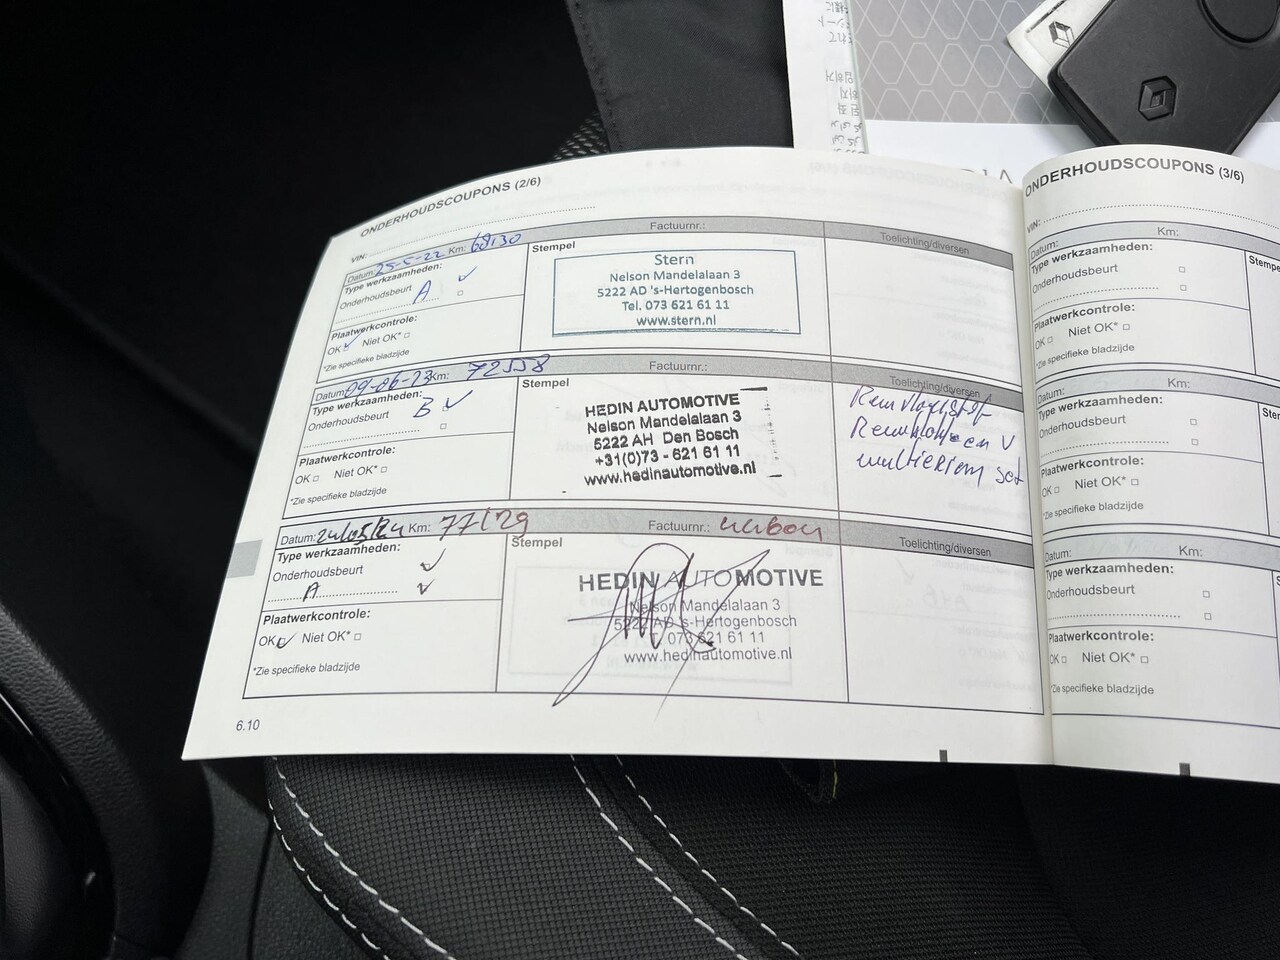 ONDERHOUDSCOUPONS (2/6)
VIN:
Datum: 25-5-22 Km: 68130 Factuurnr.: Toelichting/diversen
Type werkzaamheden:
Onderhoudsbeurt
A
Plaatwerkcontrole:
OK Niet OK*
*Zie specifieke bladzijde
Stempel
Stern
Nelson Mandelalaan 3
5222 AD 's-Hertogenbosch
Tel. 073 621 61 11
www.stern.nl
Datum: 09-06-23 Km: 72558 Factuurnr.: Toelichting/diversen
Type werkzaamheden:
Onderhoudsbeurt B
Plaatwerkcontrole:
OK Niet OK*
*Zie specifieke bladzijde
Stempel
HEDIN AUTOMOTIVE
Nelson Mandelalaan 3
5222 AH Den Bosch
+31(0)73 - 621 61 11
www.hedinautomotive.nl
Remvloeistof
Remblokken V
multiriem set
Datum: 24/05/24 Km: 77129 Factuurnr.: Toelichting/diversen
Type werkzaamheden:
Onderhoudsbeurt
A
Plaatwerkcontrole:
OK Niet OK*
*Zie specifieke bladzijde
Stempel
HEDIN AUTOMOTIVE
Nelson Mandelalaan 3
5222 AD 's-Hertogenbosch
073 621 61 11
www.hedinautomotive.nl
6.10
ONDERHOUDSCOUPONS (3/6)
VIN:
Datum: Km:
Type werkzaamheden:
Onderhoudsbeurt
Plaatwerkcontrole:
OK Niet OK*
*Zie specifieke bladzijde
Stempe
Datum: Km:
Type werkzaamheden:
Onderhoudsbeurt
Plaatwerkcontrole:
OK Niet OK*
*Zie specifieke bladzijde
Datum: Km:
Type werkzaamheden:
Onderhoudsbeurt
Plaatwerkcontrole:
OK Niet OK*
*Zie specifieke bladzijde